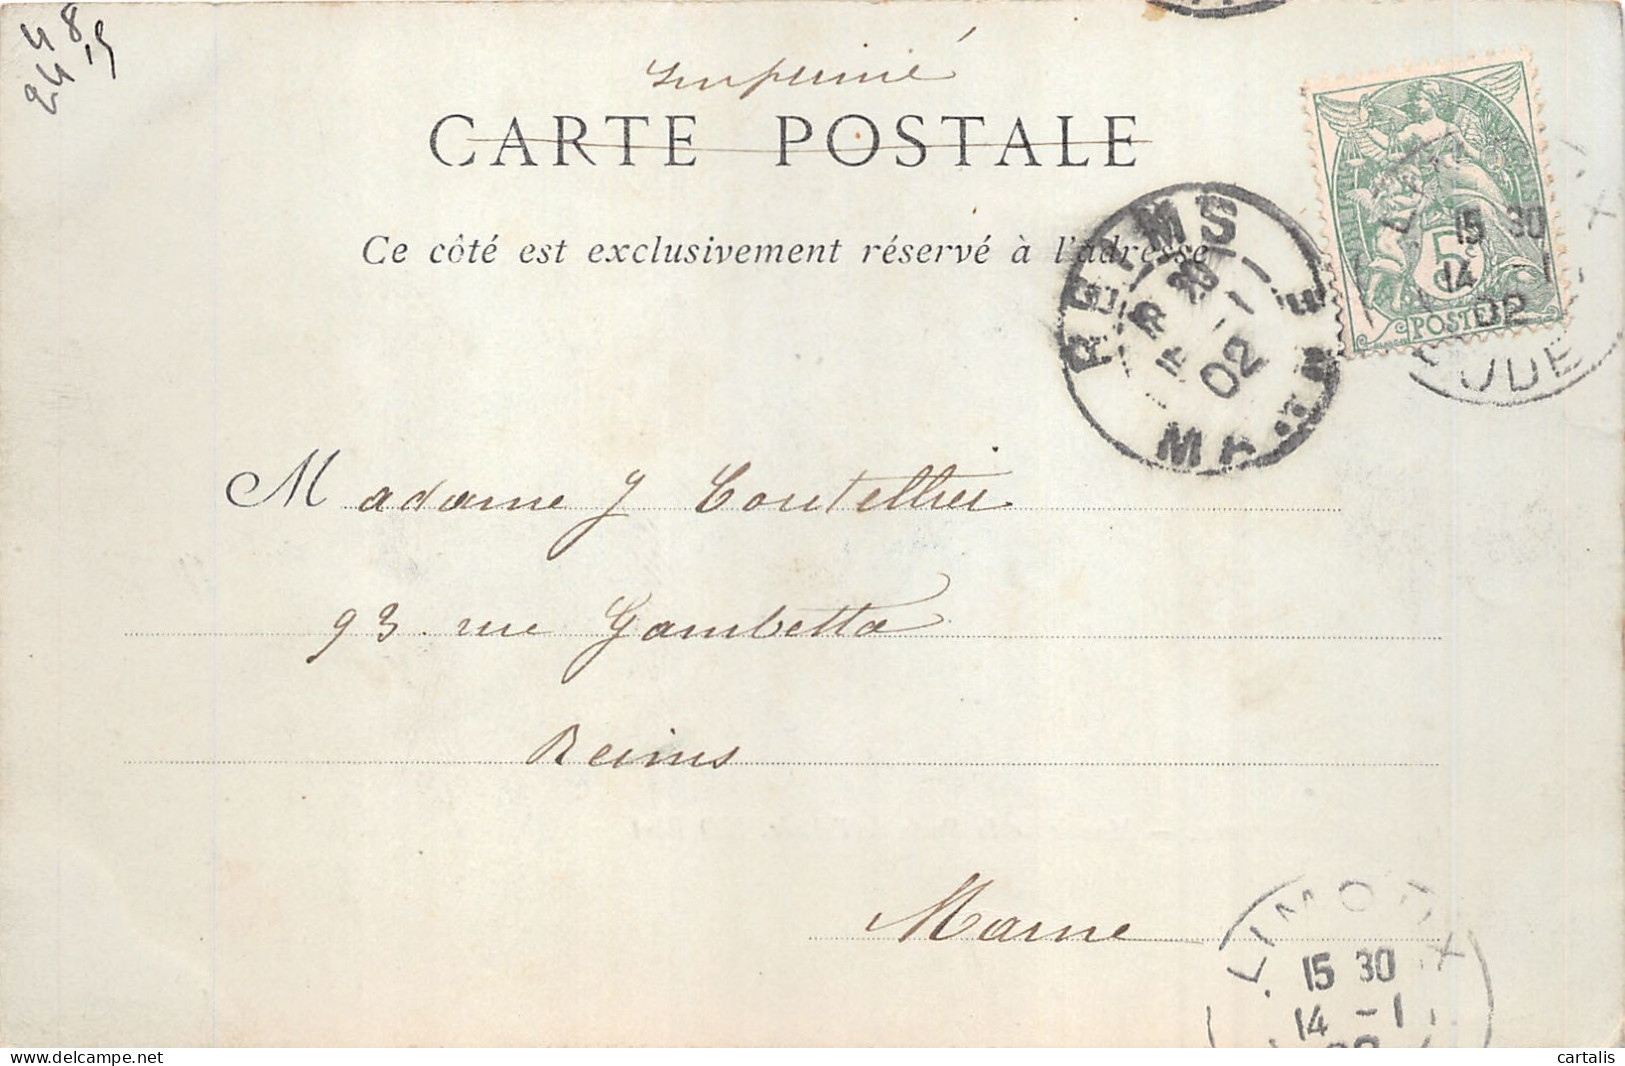 44 8
24 15
Imprimé
CARTE POSTALE
Ce côté est exclusivement réservé à l'adresse
REIMS
02
MARNE
RÉPUBLIQUE FRANÇAISE
5
POSTES
15 30
14 -1
02
AUDE
Madame J Coutellier
93 rue Gambetta
Reims
Marne
LIMOUX
15 30
14 -1
02
cartalis